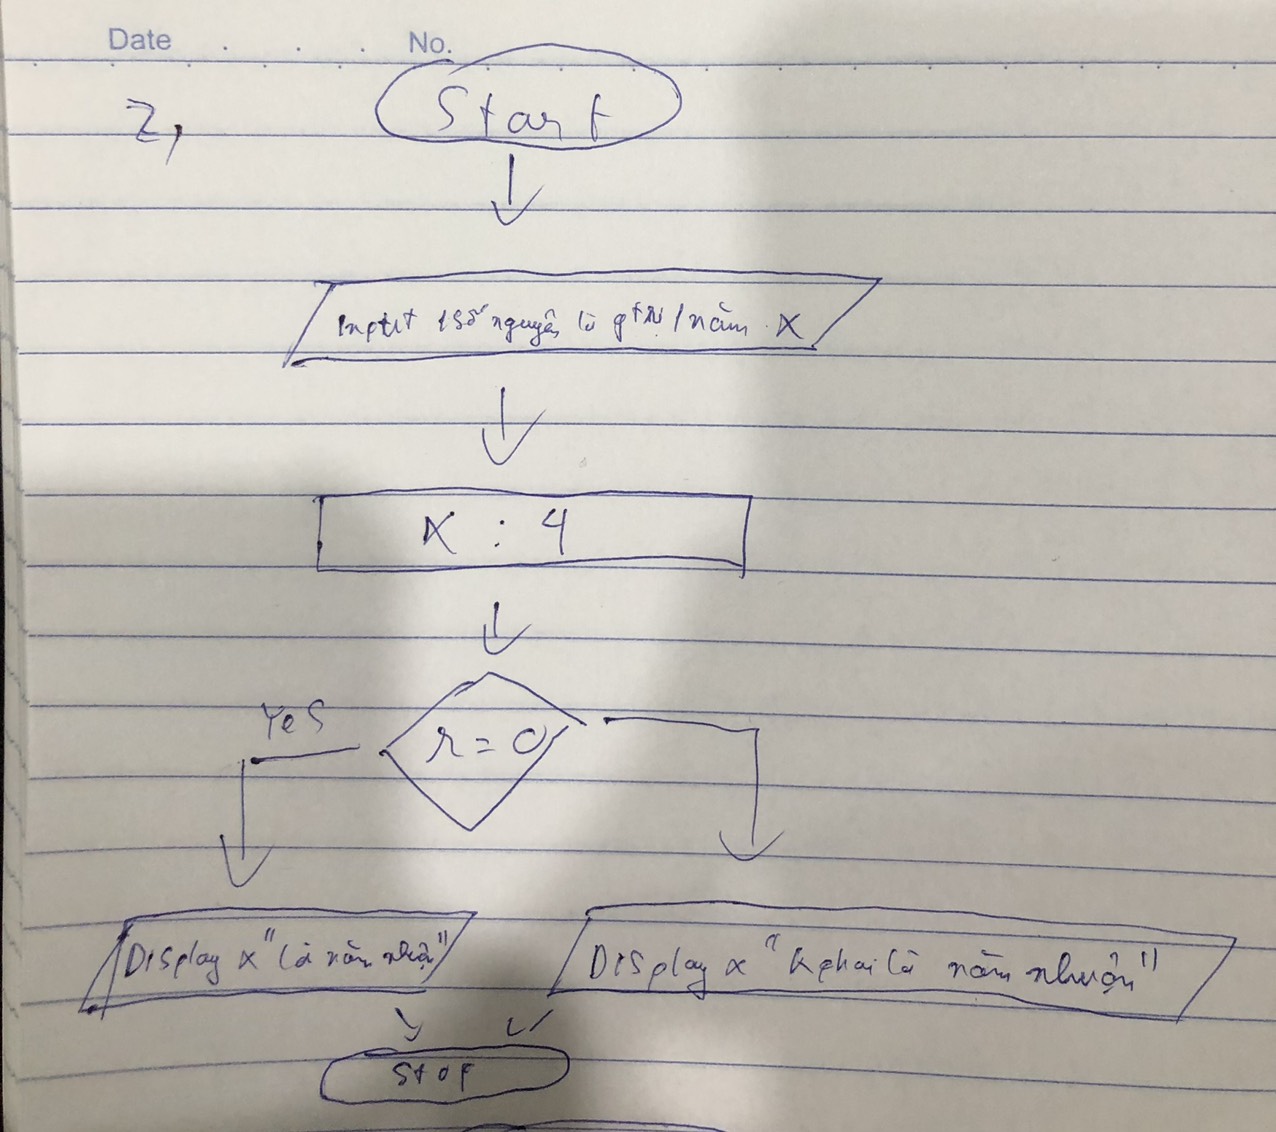 Date . . . No.
2,
Start
Input 1 số nguyên là gtrị 1 năm x
x : 4
r = 0
Yes
Display x "là năm nhuận"
Display x "k phải là năm nhuận"
Stop